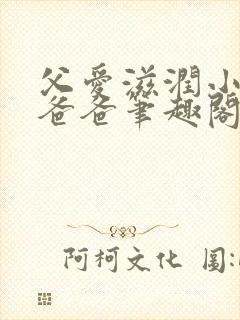 父愛滋潤小
爸爸筆趣閣
阿柯文化 圖: